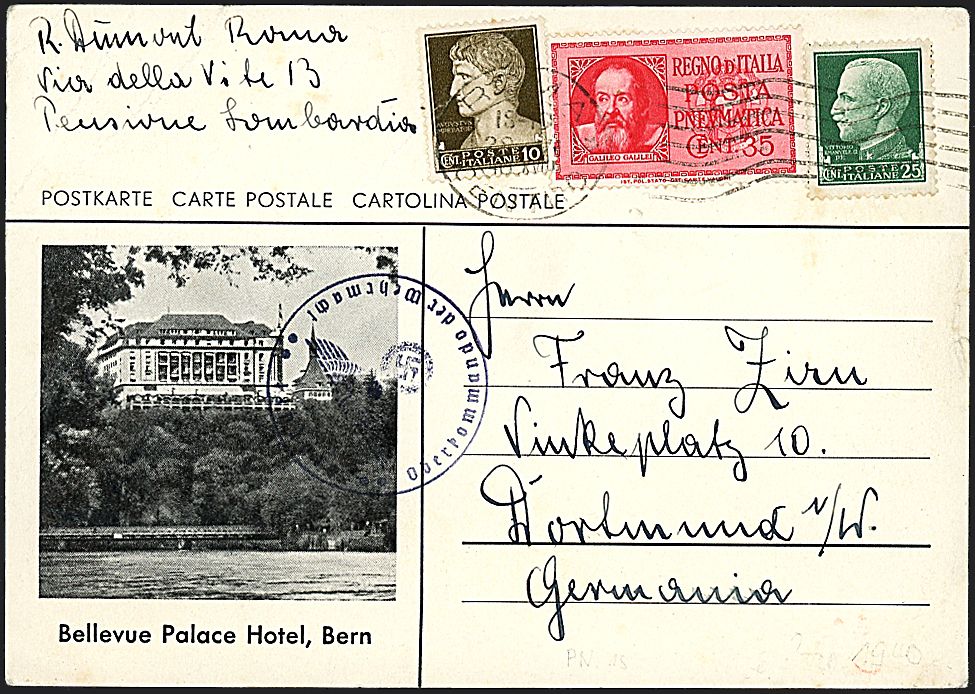 R. Dumont Roma
Via della Vite 13
Pensione Lombardia
AVGVSTVS
IMPERATOR
CENT. POSTE ITALIANE 10
REGNO D'ITALIA
POSTA
PNEVMATICA
CENT. 35
GALILEO GALILEI
IST. POL. STATO
VITTORIO
EMANVELE
RE
CENT. POSTE ITALIANE 25
18
POSTKARTE CARTE POSTALE CARTOLINA POSTALE
Oberkommando der Wehrmacht
Herrn
Franz Zirn
Vinkeplatz 10.
Dortmund i/W.
Germania
Bellevue Palace Hotel, Bern
PN. 18
1940